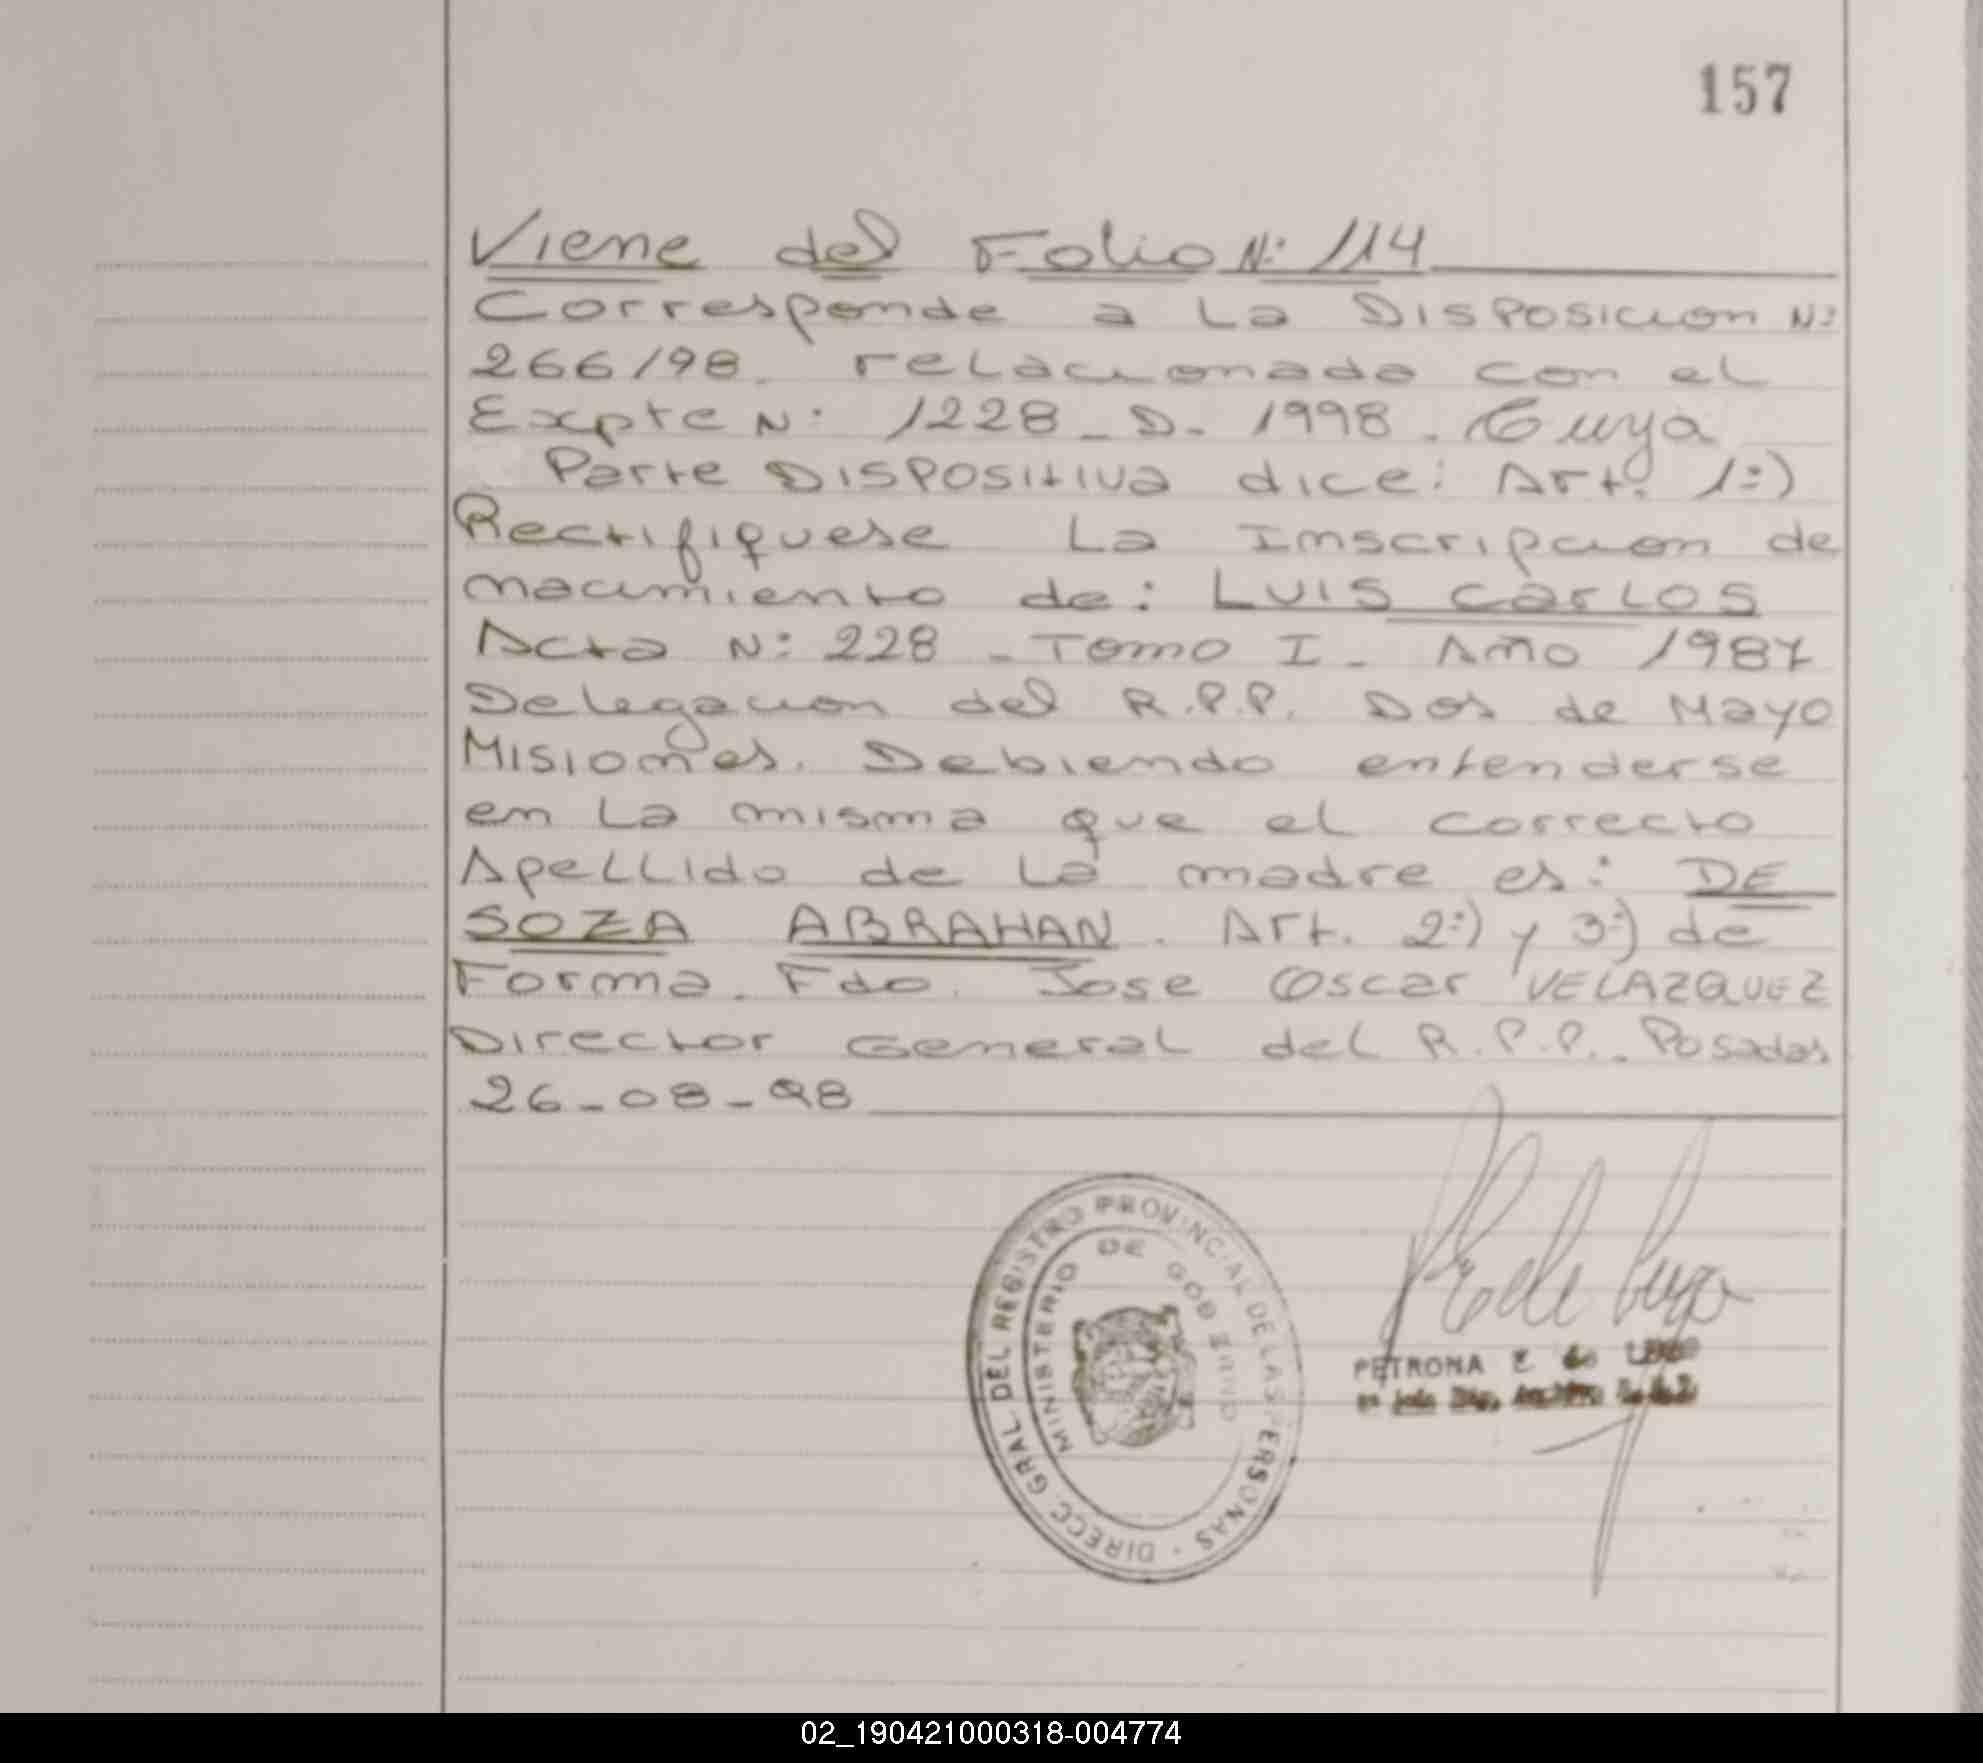 157
Viene del Folio N: 114
Corresponde a La Disposicion N:
266/98. relacionado con el
Expte N: 1228 - D - 1998. Cuya
Parte Dispositiva dice: Art. 1º)
Rectifiquese La Inscripcion de
nacimiento de: LUIS CARLOS
Acta N: 228 - Tomo I - Año 1987
Delegacion del R.P.P. Dos de Mayo
Misiones. Debiendo entenderse
en La misma que el correcto
Apellido de La madre es: DE
SOZA ABRAHAN. Art. 2º) y 3º) de
Forma. Fdo. Jose Oscar VELAZQUEZ
Director General del R.P.P. Posadas
26-08-98
DIRECC GRAL DEL REGISTRO PROVINCIAL DE LAS PERSONAS
MINISTERIO DE GOBIERNO
PETRONA E. de
02_190421000318-004774